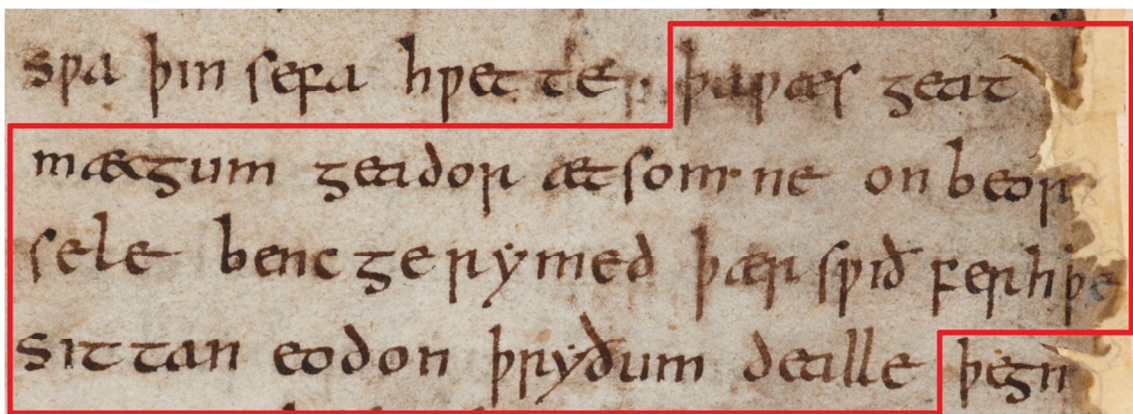 sƿa þin sefa hƿette. þaƿæs geat
mæcgum geador ætsomne on beor
sele benc gerymed þær sƿið ferhþe
sittan eodon þryðum dealle þegn